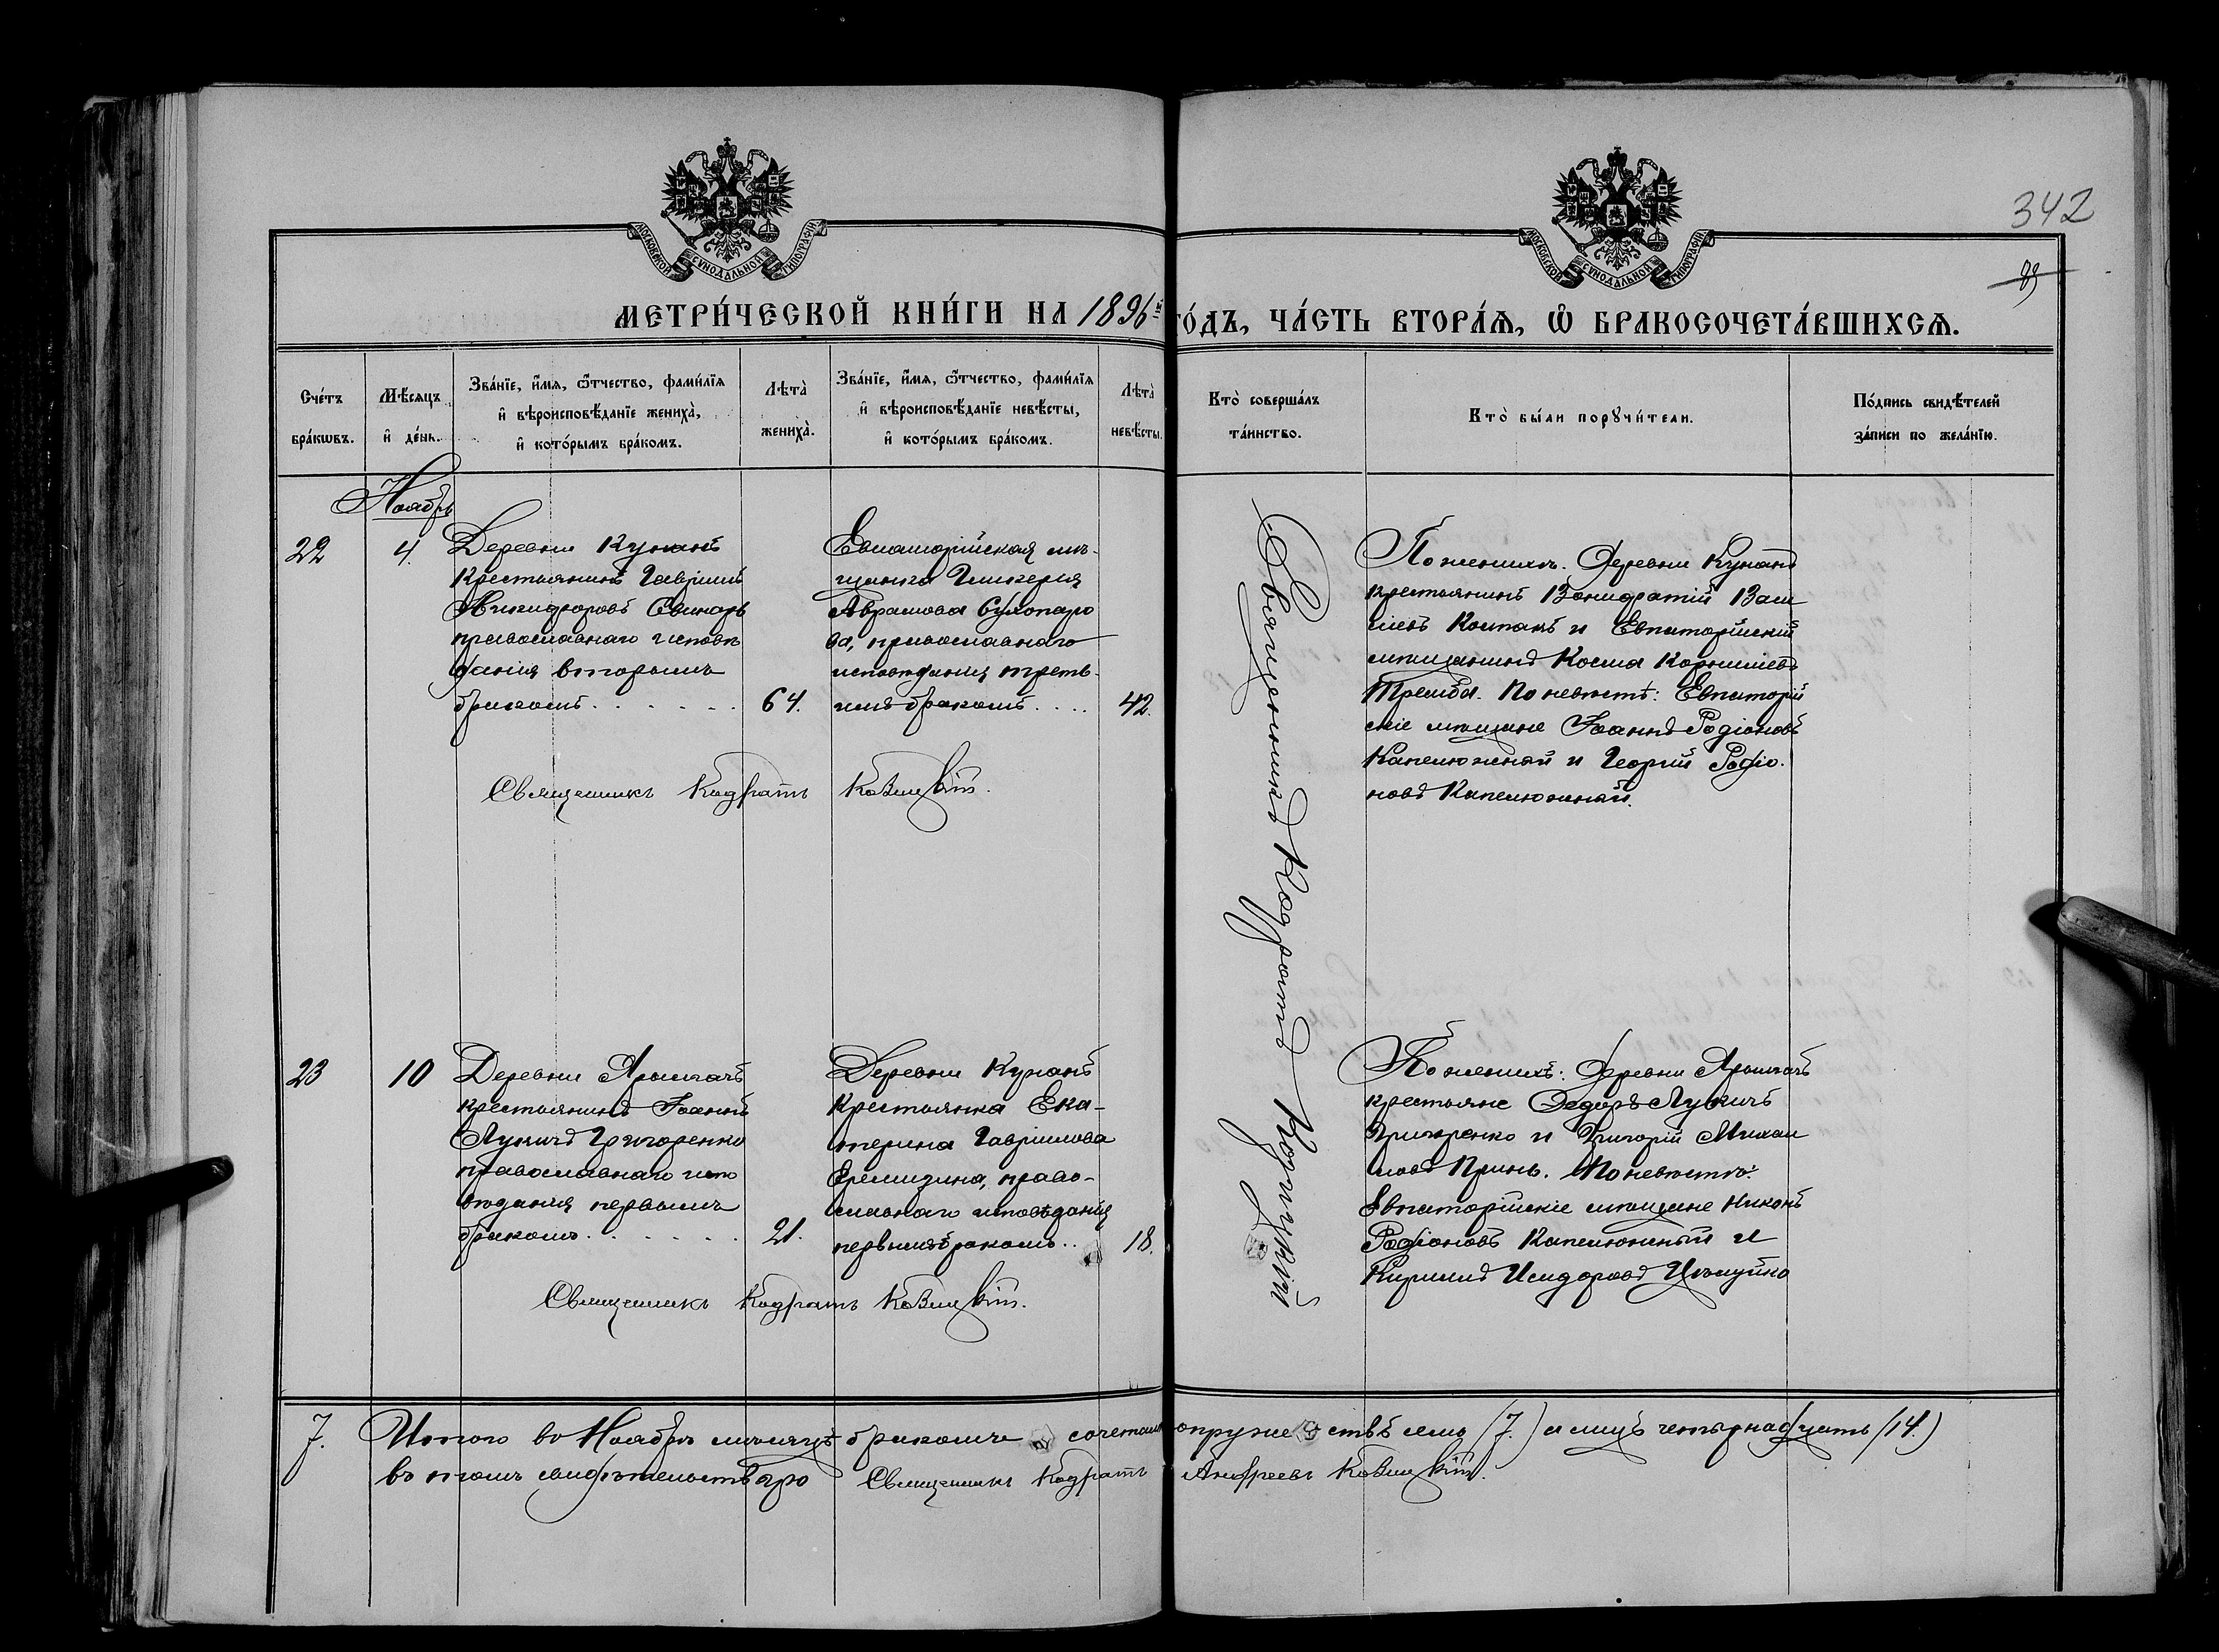 342
89
МОСКОВСКОЙ СѴНОДАЛЬНОЙ ТИПОГРАФІИ
МОСКОВСКОЙ СѴНОДАЛЬНОЙ ТИПОГРАФІИ
МЕТРИ́ЧЕСКОЙ КНИ́ГИ НА 1896й ГО́ДЪ, ЧА́СТЬ ВТОРА́Ѧ, Ѡ҆ БРАКОСОЧЕТА́ВШИХСѦ.
Сче́тъ
бра́кѡвъ.
Мѣ́сѧцъ
и҆ де́нь.
Зва́нїе, и҆́мѧ, ѻ҆́тчество, фами́лїѧ
и҆ вѣроисповѣ́данїе жениха̀,
и҆ кото́рымъ бра́комъ.
Лѣта̀
жениха̀.
Зва́нїе, и҆́мѧ, ѻ҆́тчество, фами́лїѧ
и҆ вѣроисповѣ́данїе невѣ́сты,
и҆ кото́рымъ бра́комъ.
Лѣта̀
невѣ́сты.
Кто̀ соверша́лъ
та́инство.
Кто̀ бы́ли порꙋчи́тели.
По́дпись свидѣ́телей
за́писи по жела́нїю.
Ноябрь
22
4.
Деревни Кунанъ
крестьянинъ Гавріилъ
Никифоровъ Свинарь
православнаго исповѣ
данія вторымъ
бракомъ
64.
Евпаторійская мѣ-
щанка Гликерія
Аврамова Сухопаро
ва, православнаго
исповѣданія треть-
имъ бракомъ
42.
Священникъ Кодратъ Козицкій
По женихѣ: Деревни Кунанъ
крестьянинъ Бонифатій Васи
ліевъ Костакъ и Евпаторійскій
мѣщанинъ Косма Корниліевъ
По невѣстѣ: Евпаторій
скіе мѣщане Іоаннъ Родіоновъ
Капелюжный и Георгій Родіо-
новъ Капелюжный.
Священникъ Кодратъ Козицкій
23
10
Деревни Ярымкачъ
крестьянинъ Іоаннъ
Лукичъ Григоренко
православнаго испо
вѣданія первымъ
бракомъ
21.
Деревни Кунанъ
крестьянка Ека-
терина Гавріилова
Еремизина, право-
славнаго исповѣданія
первымъ бракомъ
18.
Священникъ Кодратъ Козицкій.
По женихѣ: Деревни Ярымкачъ
крестьяне Ѳедоръ Лукичъ
Григоренко и Григорій Михаи
ловъ По невѣстѣ:
Евпаторійскіе мѣщане Никонъ
Родіоновъ Капелюжный и
Кириллъ Исидоровъ
7. Итого въ Ноябрѣ мѣсяцѣ бракомъ сочеталось супружествъ семь (7.) а лицъ четырнадцать (14.)
въ томъ свидѣтельствую Священникъ Кодратъ Андреевъ Козицкій.